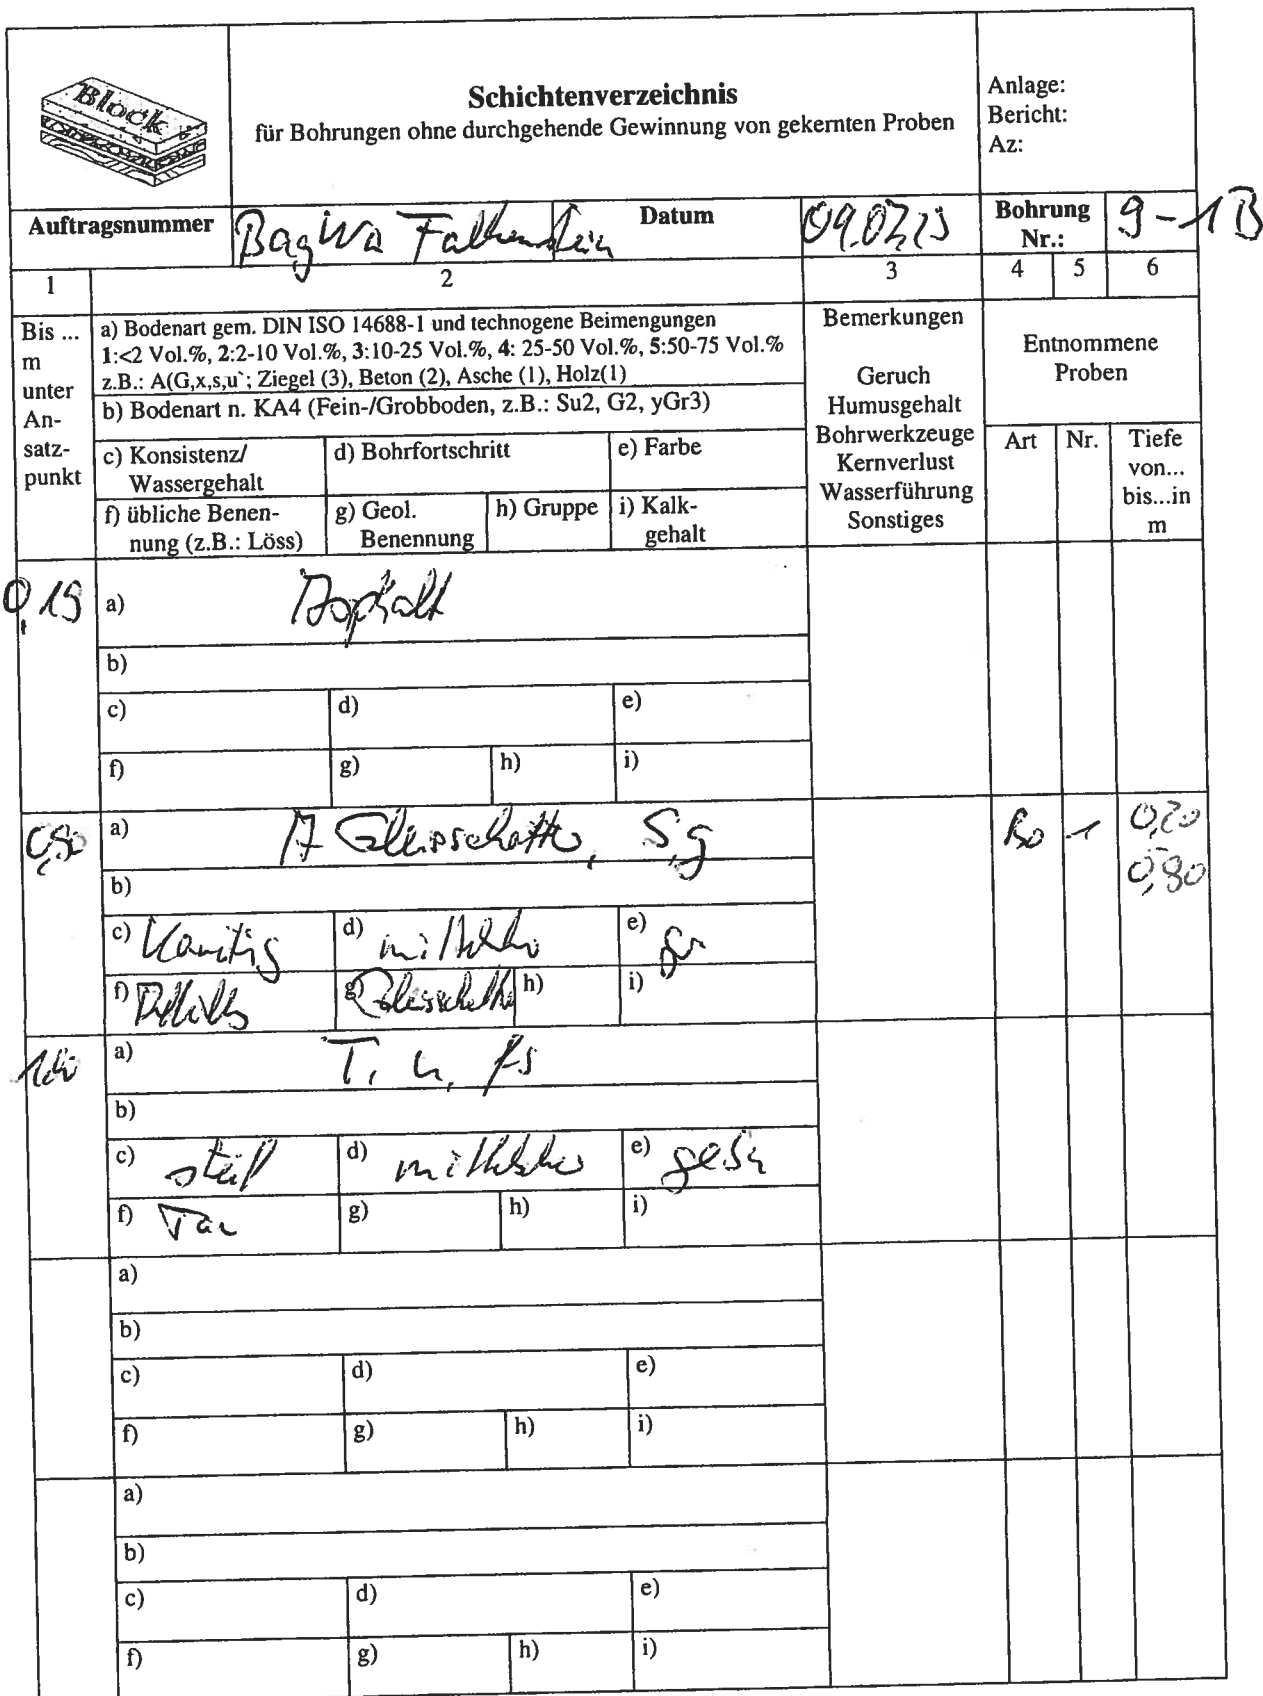 Block
Schichtenverzeichnis
für Bohrungen ohne durchgehende Gewinnung von gekernten Proben
Anlage:
Bericht:
Az:
Auftragsnummer
BagWa Falkenstein
Datum
Bohrung
Nr.:
9-1B
1
2
3
4
5
6
Bis ...
m
unter
An-
satz-
punkt
a) Bodenart gem. DIN ISO 14688-1 und technogene Beimengungen
1:<2 Vol.%, 2:2-10 Vol.%, 3:10-25 Vol.%, 4: 25-50 Vol.%, 5:50-75 Vol.%
z.B.: A(G,x,s,u`; Ziegel (3), Beton (2), Asche (1), Holz(1)
b) Bodenart n. KA4 (Fein-/Grobboden, z.B.: Su2, G2, yGr3)
c) Konsistenz/
Wassergehalt
d) Bohrfortschritt
e) Farbe
f) übliche Benen-
nung (z.B.: Löss)
g) Geol.
Benennung
h) Gruppe
i) Kalk-
gehalt
Bemerkungen
Geruch
Humusgehalt
Bohrwerkzeuge
Kernverlust
Wasserführung
Sonstiges
Entnommene
Proben
Art
Nr.
Tiefe
von...
bis...in
m
0,19
a) Asphalt
b)
c)
d)
e)
f)
g)
h)
i)
a) A Gleisschotter, S,g
1
0,20
0,80
b)
c) Kantig
d)
e) gr
f)
g) Gleisschotter
h)
i)
a) T, u, fs
b)
c) steif
d)
e)
f) Ton
g)
h)
i)
a)
b)
c)
d)
e)
f)
g)
h)
i)
a)
b)
c)
d)
e)
f)
g)
h)
i)